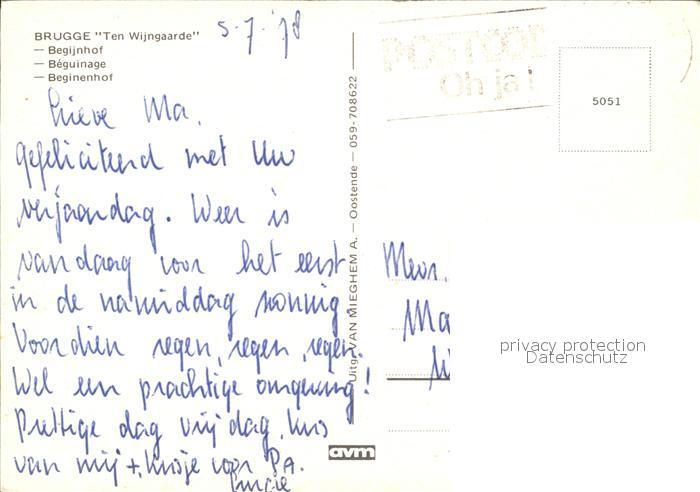 BRUGGE "Ten Wijngaarde"
— Begijnhof
— Béguinage
— Beginenhof
5-7-'78
Lieve Ma,
gefeliciteerd met Uw
verjaardag. Weer is
vandaag voor het eerst
in de namiddag zonnig.
Voordien regen, regen, regen.
Wel een prachtige omgeving!
Prettige dag vrijdag, kus
van mij + kusje voor Pa.
Uitg. VAN MIEGHEM A. — Oostende — 059-708622
avm
POSTCODE
Oh ja!
5051
Mevr.
Ma
privacy protection
Datenschutz